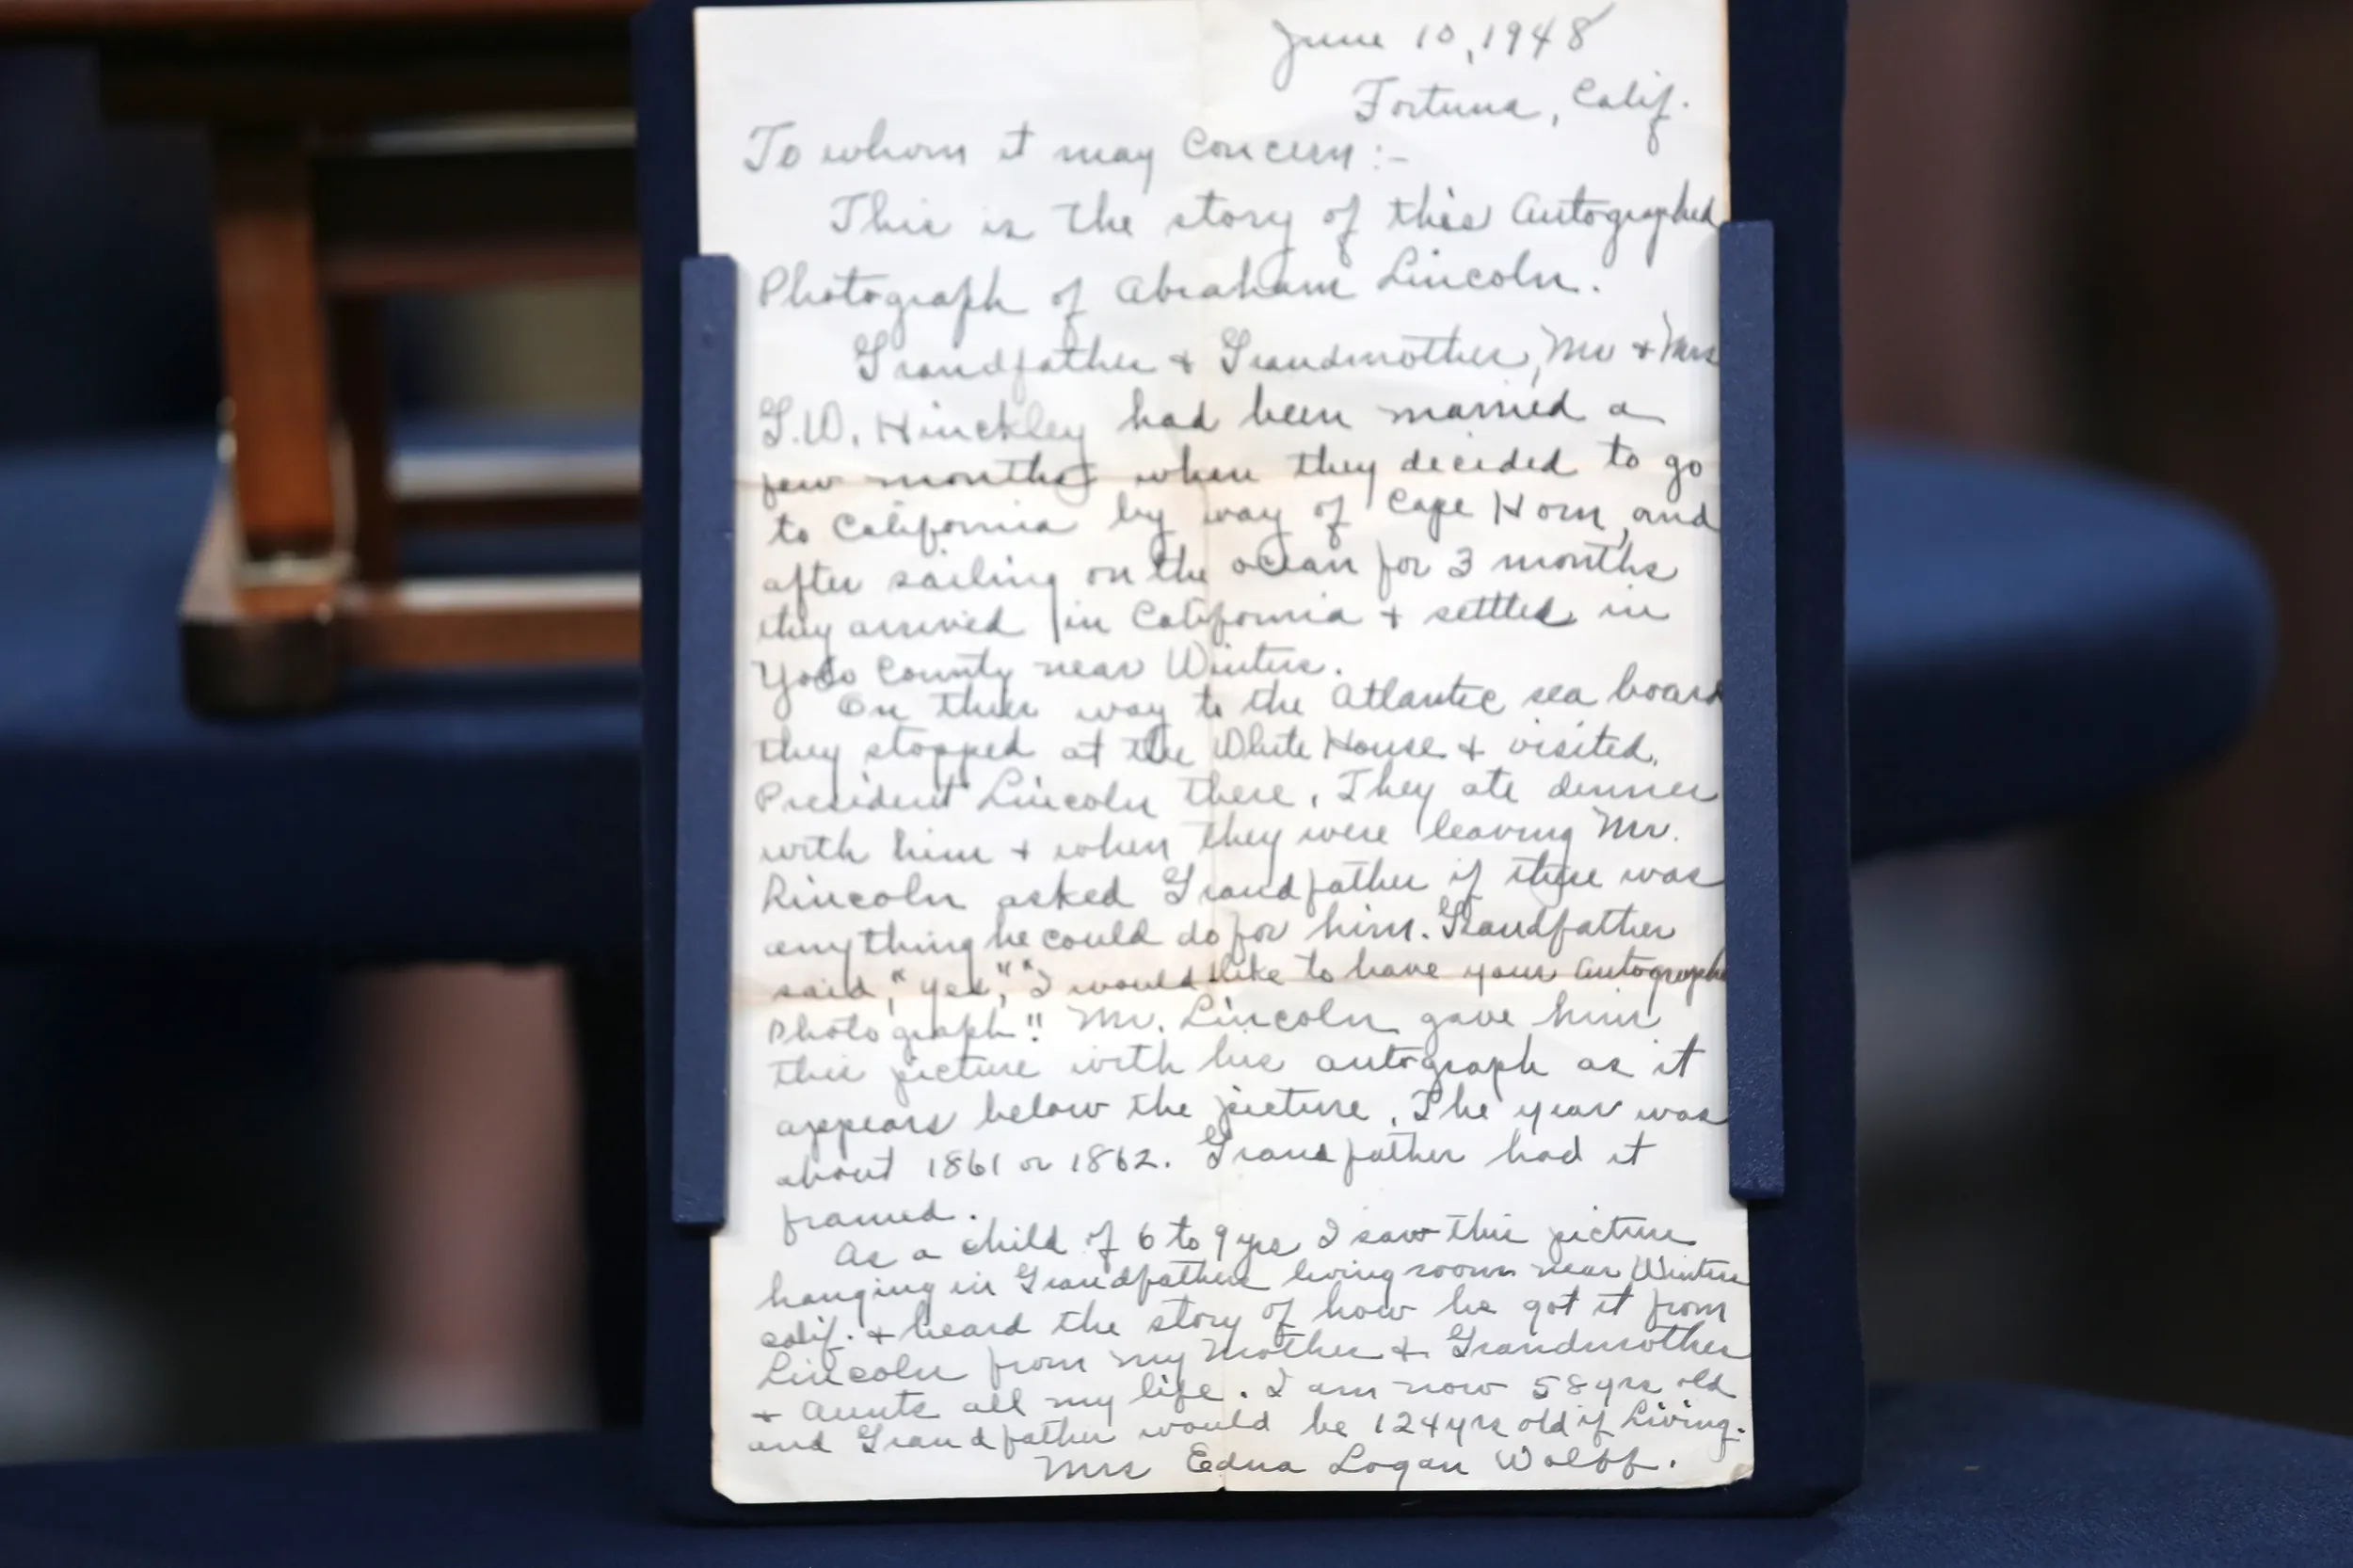 June 10, 1948
Fortuna, Calif.
To whom it may Concern:-
This is the story of this Autographed
Photograph of Abraham Lincoln.
Grandfather + Grandmother, Mr + Mrs
G.W. Hinckley had been married a
few months when they decided to go
to California by way of Cape Horn, and
after sailing on the ocean for 3 months
they arrived in California + settled in
Yolo County near Winters.
On their way to the Atlantic sea board
they stopped at the White House + visited
President Lincoln there. They ate dinner
with him + when they were leaving Mr.
Lincoln asked Grandfather if there was
anything he could do for him. Grandfather
said, "yes," "I would like to have your Autographed
Photograph". Mr. Lincoln gave him
this picture with his autograph as it
appears below the picture. The year was
about 1861 or 1862. Grandfather had it
framed.
As a child of 6 to 9 yrs I saw this picture
hanging in Grandfathers living room near Winters
Calif. + heard the story of how he got it from
Lincoln from my Mother + Grandmother
+ Aunts all my life. I am now 58 yrs old
and Grandfather would be 124 yrs old if Living.
Mrs Edna Logan Wolff.